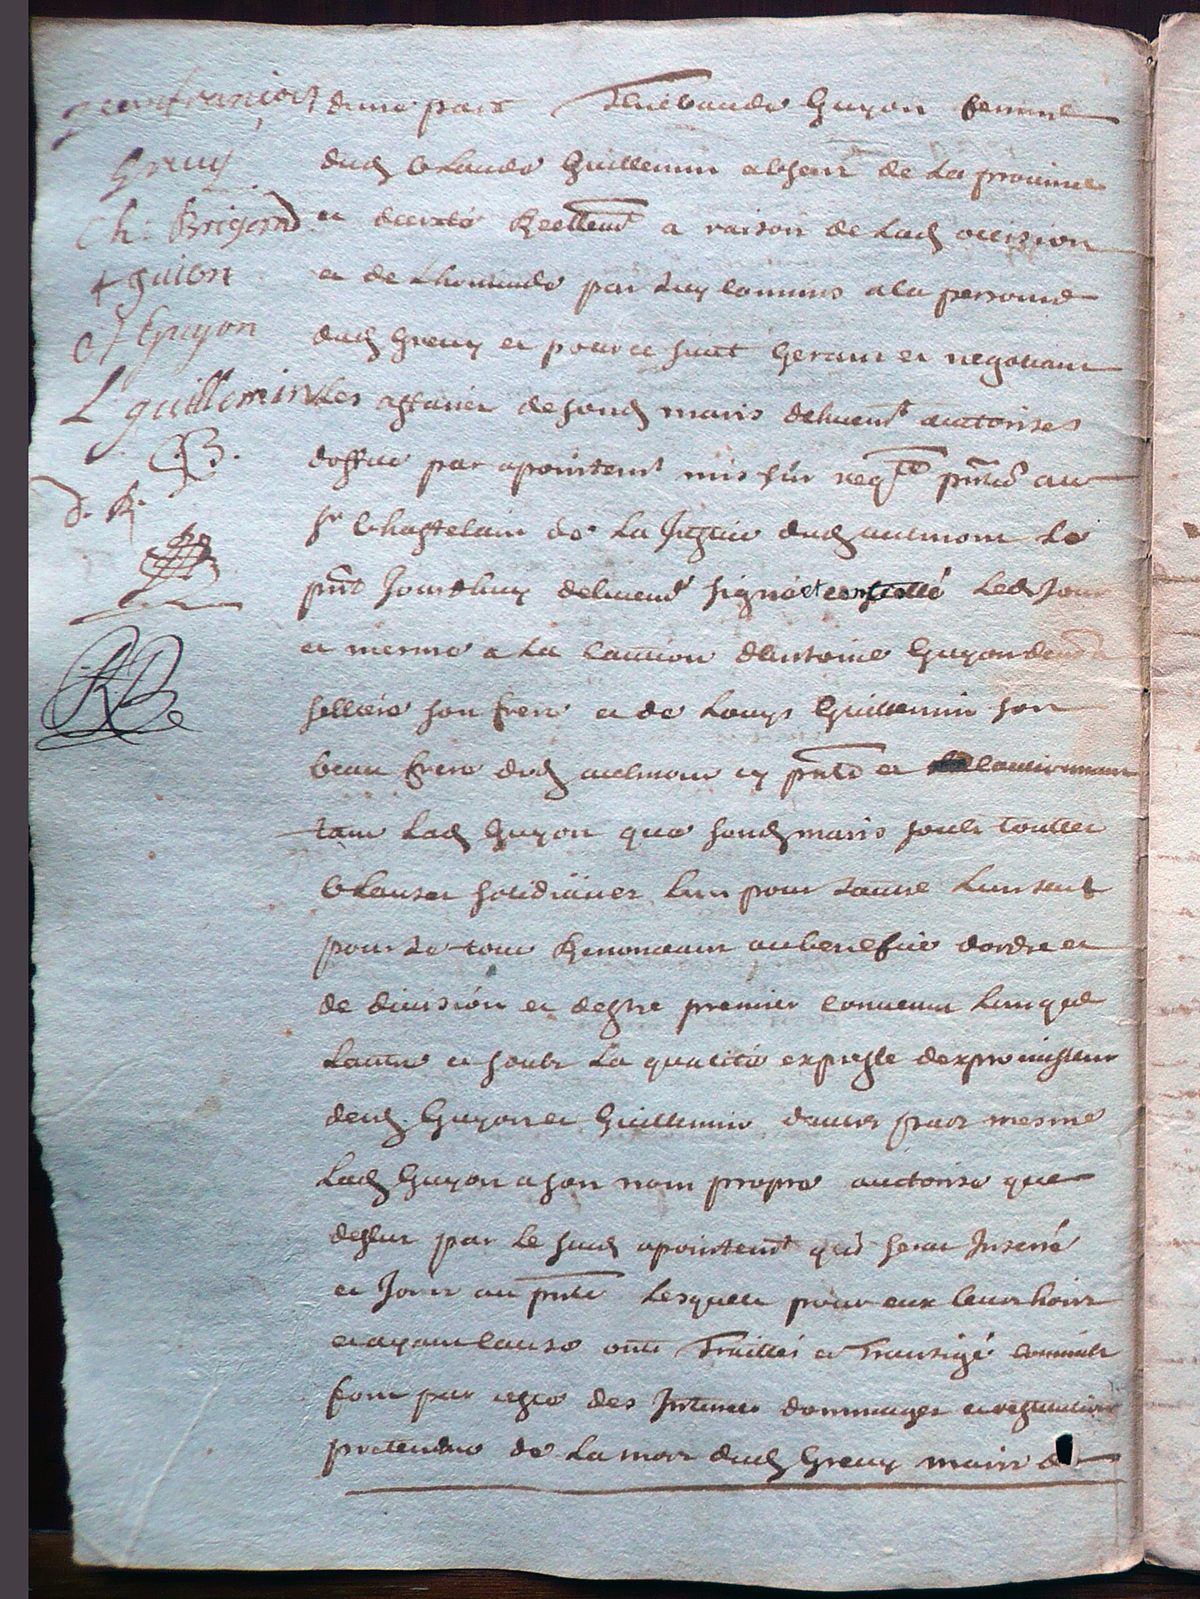 jeanfrancois
Greuy
Ch: Brigand
+ guion
Guyon
L guillemin
B.
d. R.
dune part Thiebaude Guyon femme
dud Claude Guillemin absent de la province
et decreté Reellemt a raison de lad occision
et de Lhomicide par luy commis a la personne
dud Greuy et pour ce suiet Gerant et negotiant
Les affaires de sond maris dehuemt auctorisée
doffice par apointemt mis sur reqte pntée au
sr Chastelain de La Justice dud aulmont Le
pnt Jourdhuy dehuemt signé Led Jour
et mesme a La caution dantoine Guyon
sellier son frere et de Louys Guillemin son
beau frere dud aulmont cy pnts et cautionnant
tant Lad Guyon que sond maris soubs touttes
Clauses solidaires Lun pour Lautre Lun seul
pour Le tout Renonceant au benefice dordre et
de diuision et destre premier conuenu Lun que
Lautre et soubs La qualité expresse dexpromisseur
desd Guyon et Guillemin dautre part mesme
Lad Guyon a son nom propre auctorisé que
dessus par Le susd apointemt qui sera Inseré
et Joint au pnte Lesquels pour eux leurs hoirs
et ayant cause ont Traittés et Transigé comme Ils
font par ceste des Interests dommages et restitutions
pretendue de La mort dud Greuy maris de